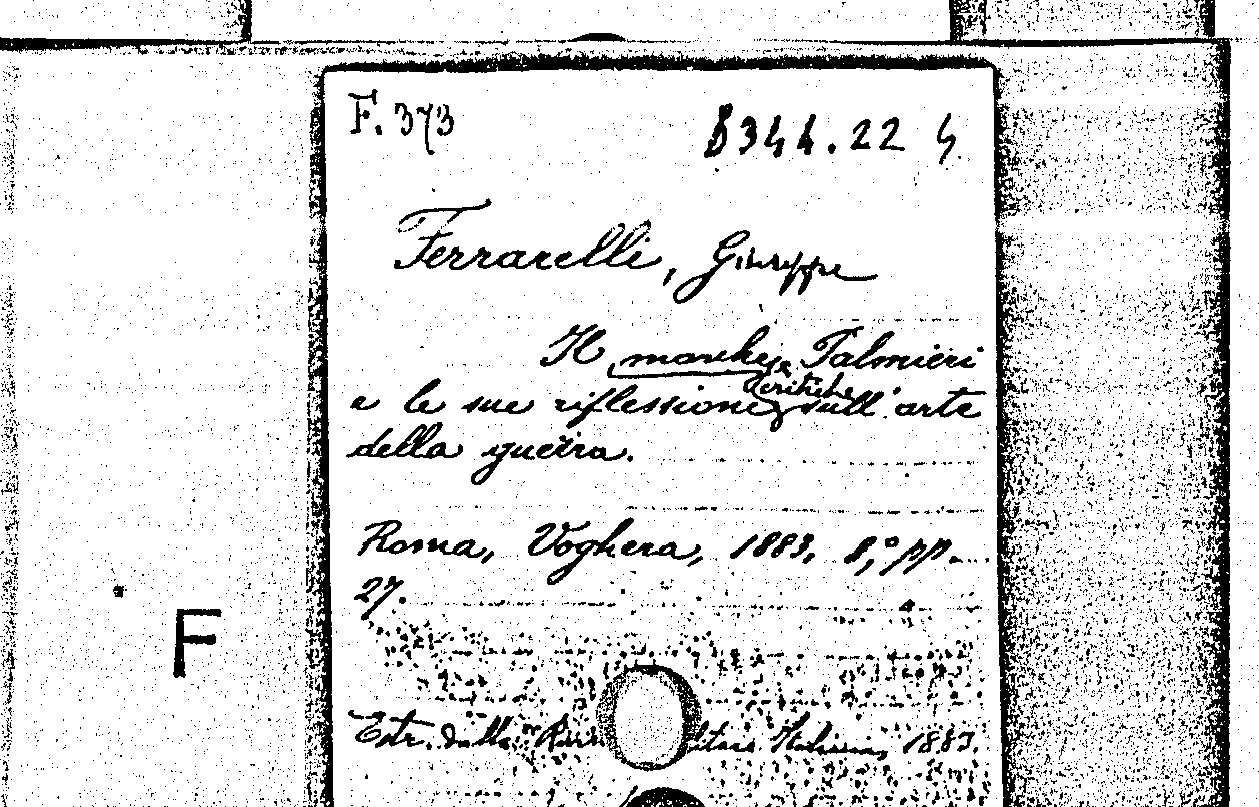 F. 373
B344.22 4
Ferrarelli, Giuseppe
Il marchese Palmieri
e le sue riflessione critiche sull'arte
della guerra.
Roma, Voghera, 1883, 8,° pp.
27.
F
Estr. dalla Italiana, 1883.